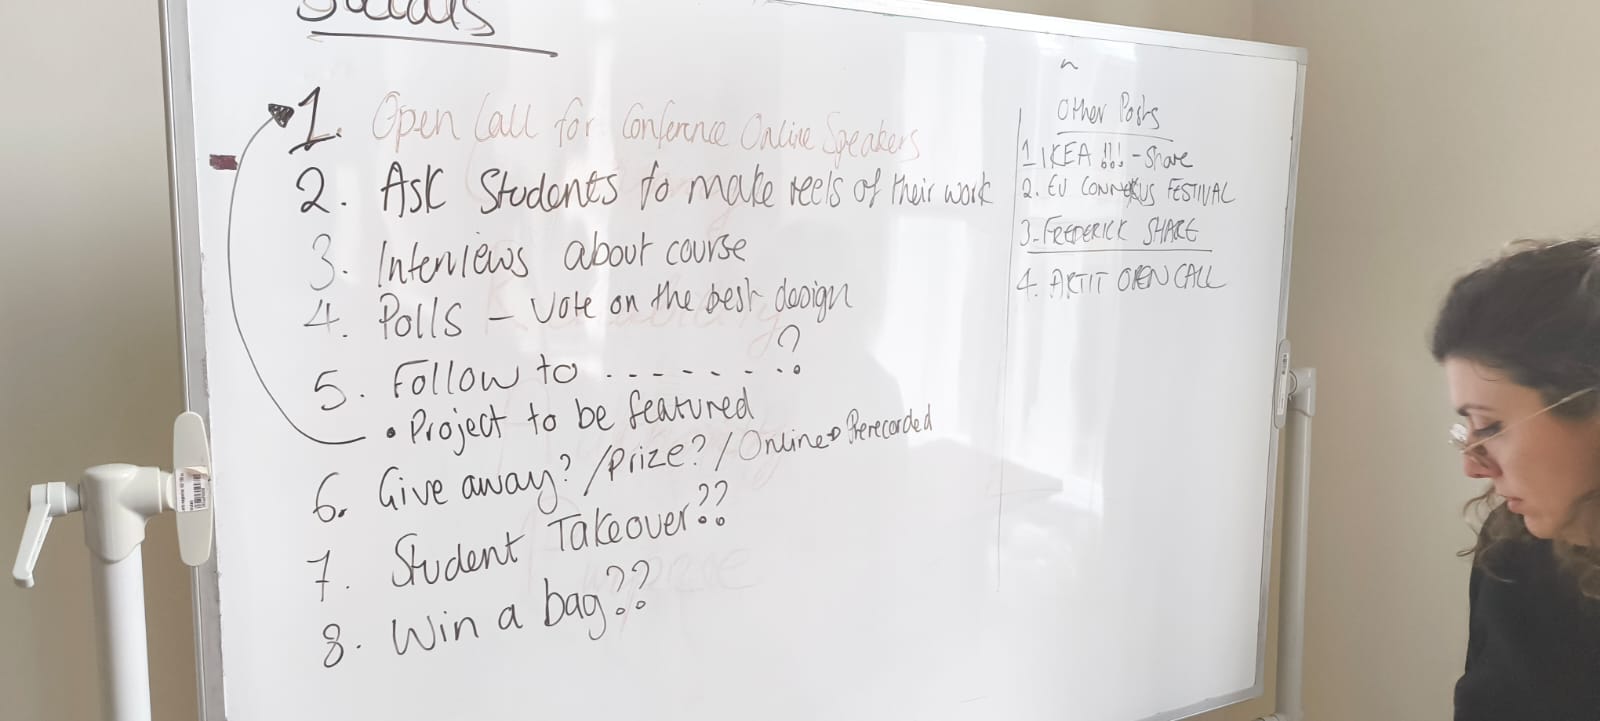 Socials
1. Open Call for Conference Online Speakers
2. Ask Students to make reels of their work
3. Interviews about course
4. Polls - Vote on the best design
5. Follow to ........?
• Project to be featured
6. Give away? /Prize? / Online → Prerecorded
7. Student Takeover??
8. Win a bag??
Other Posts
1 IKEA !!! - Share
2. EU CONNEXUS FESTIVAL
3-FREDERICK SHARE
4. ARTIT OPEN CALL